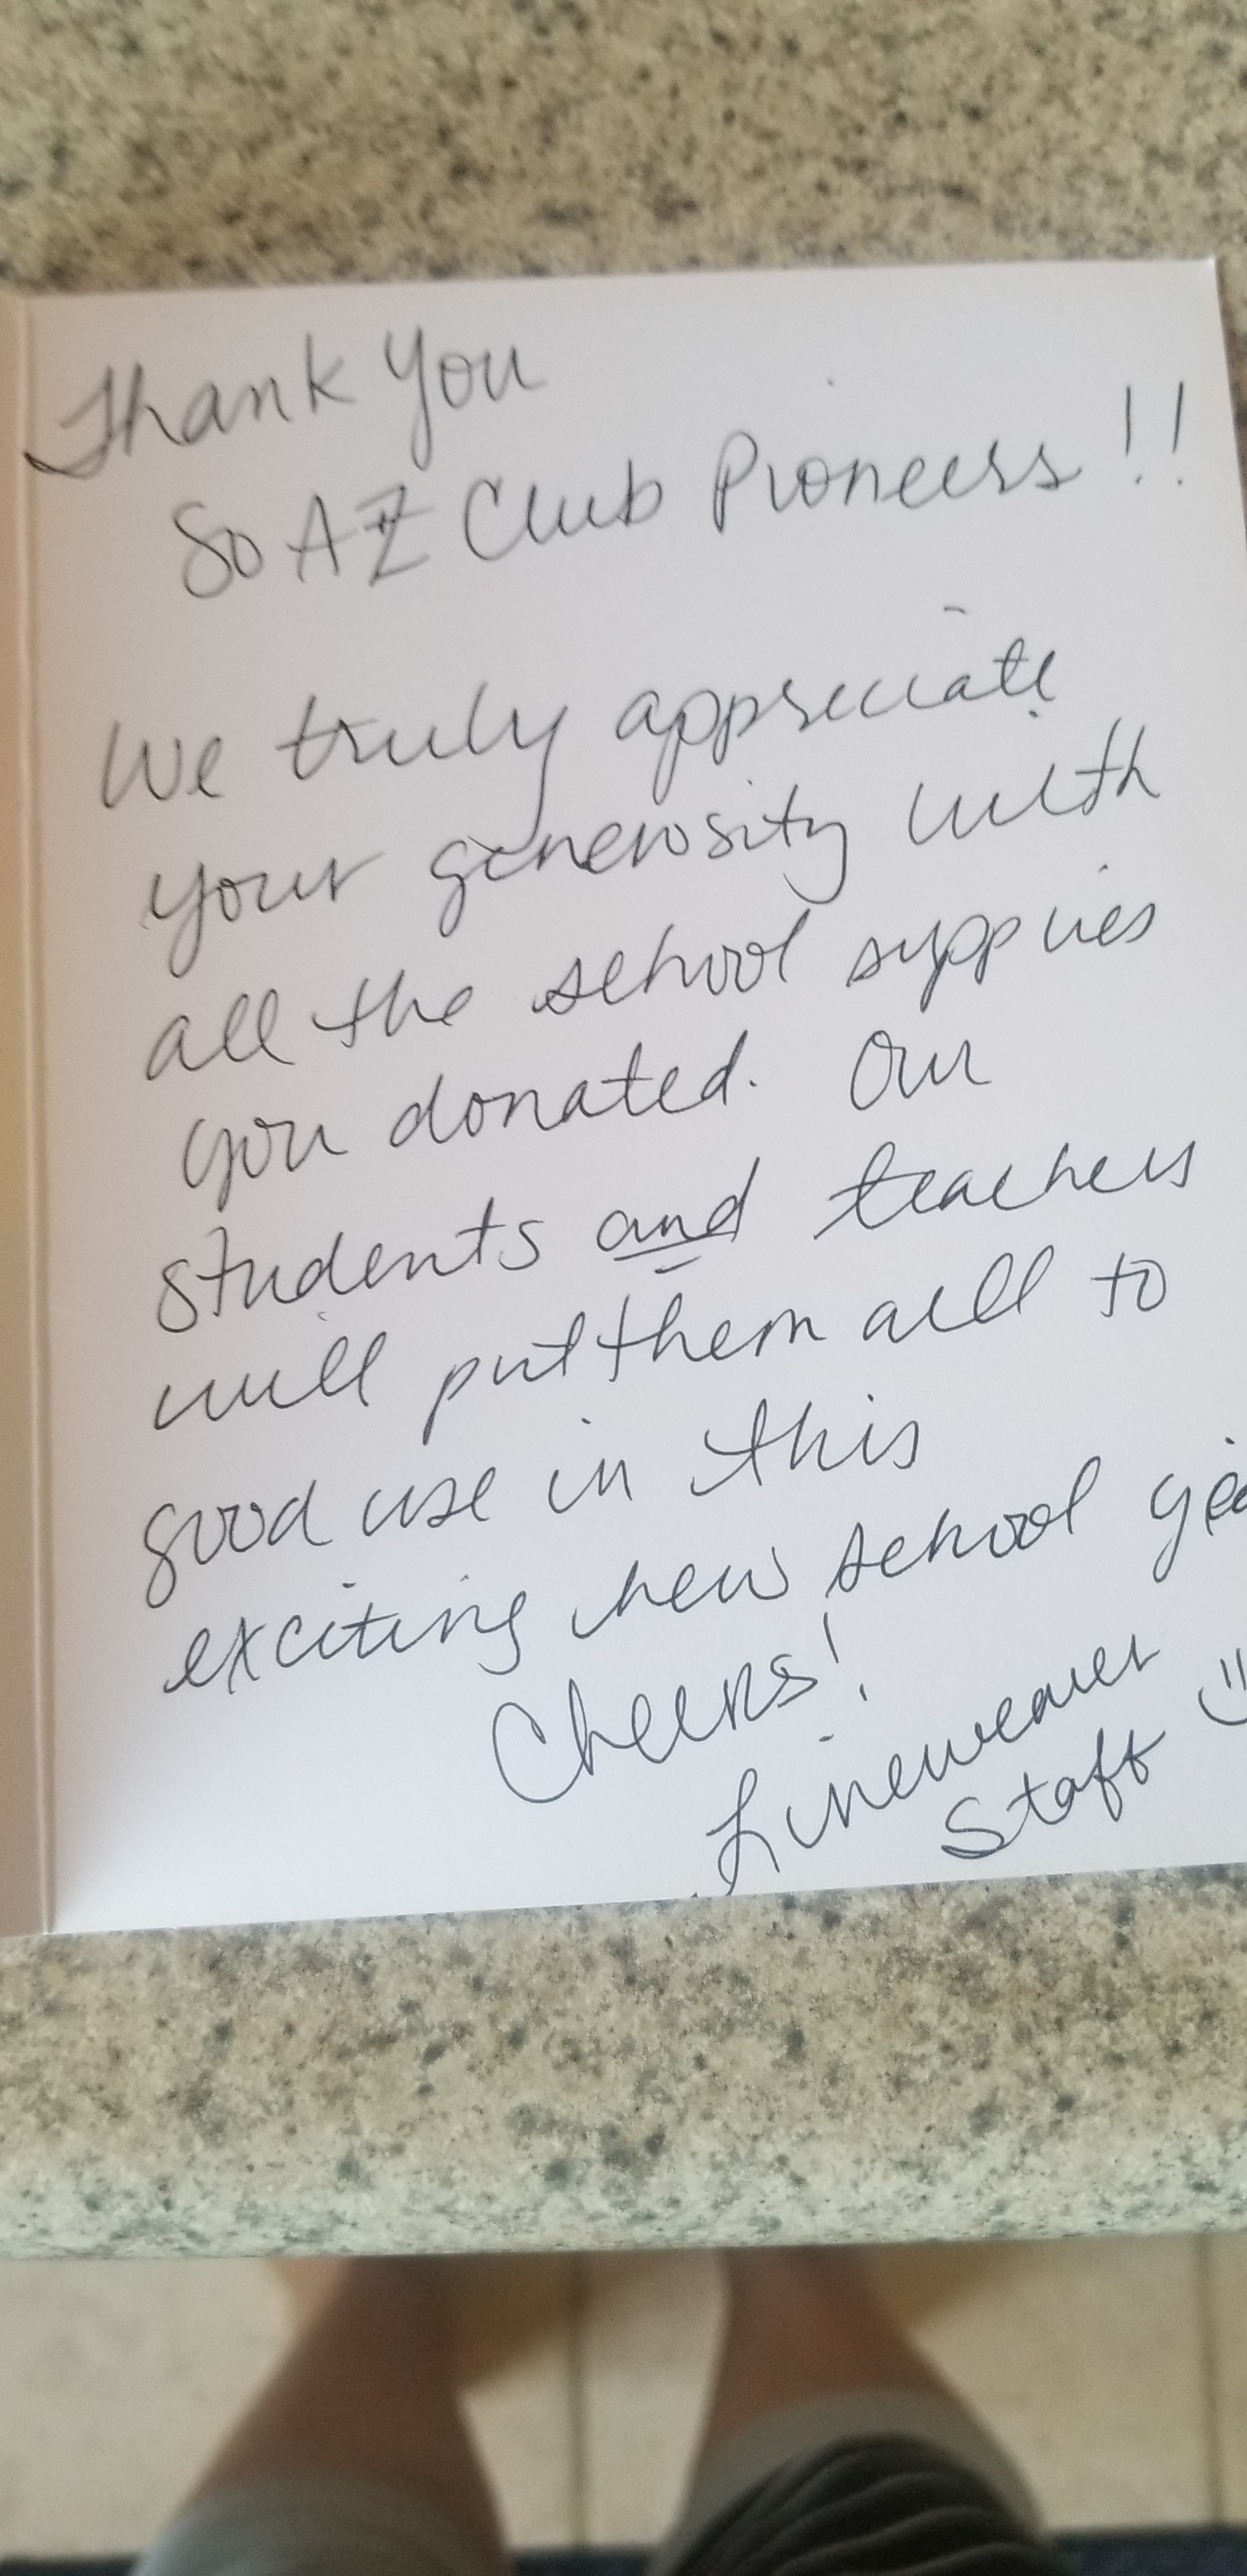 Thank You
So AZ Club Pioneers!!
We truly appreciate
your generosity with
all the school supplies
you donated. Our
students and teachers
will put them all to
good use in this
exciting new school yea
Cheers!
Lineweaver
Staff